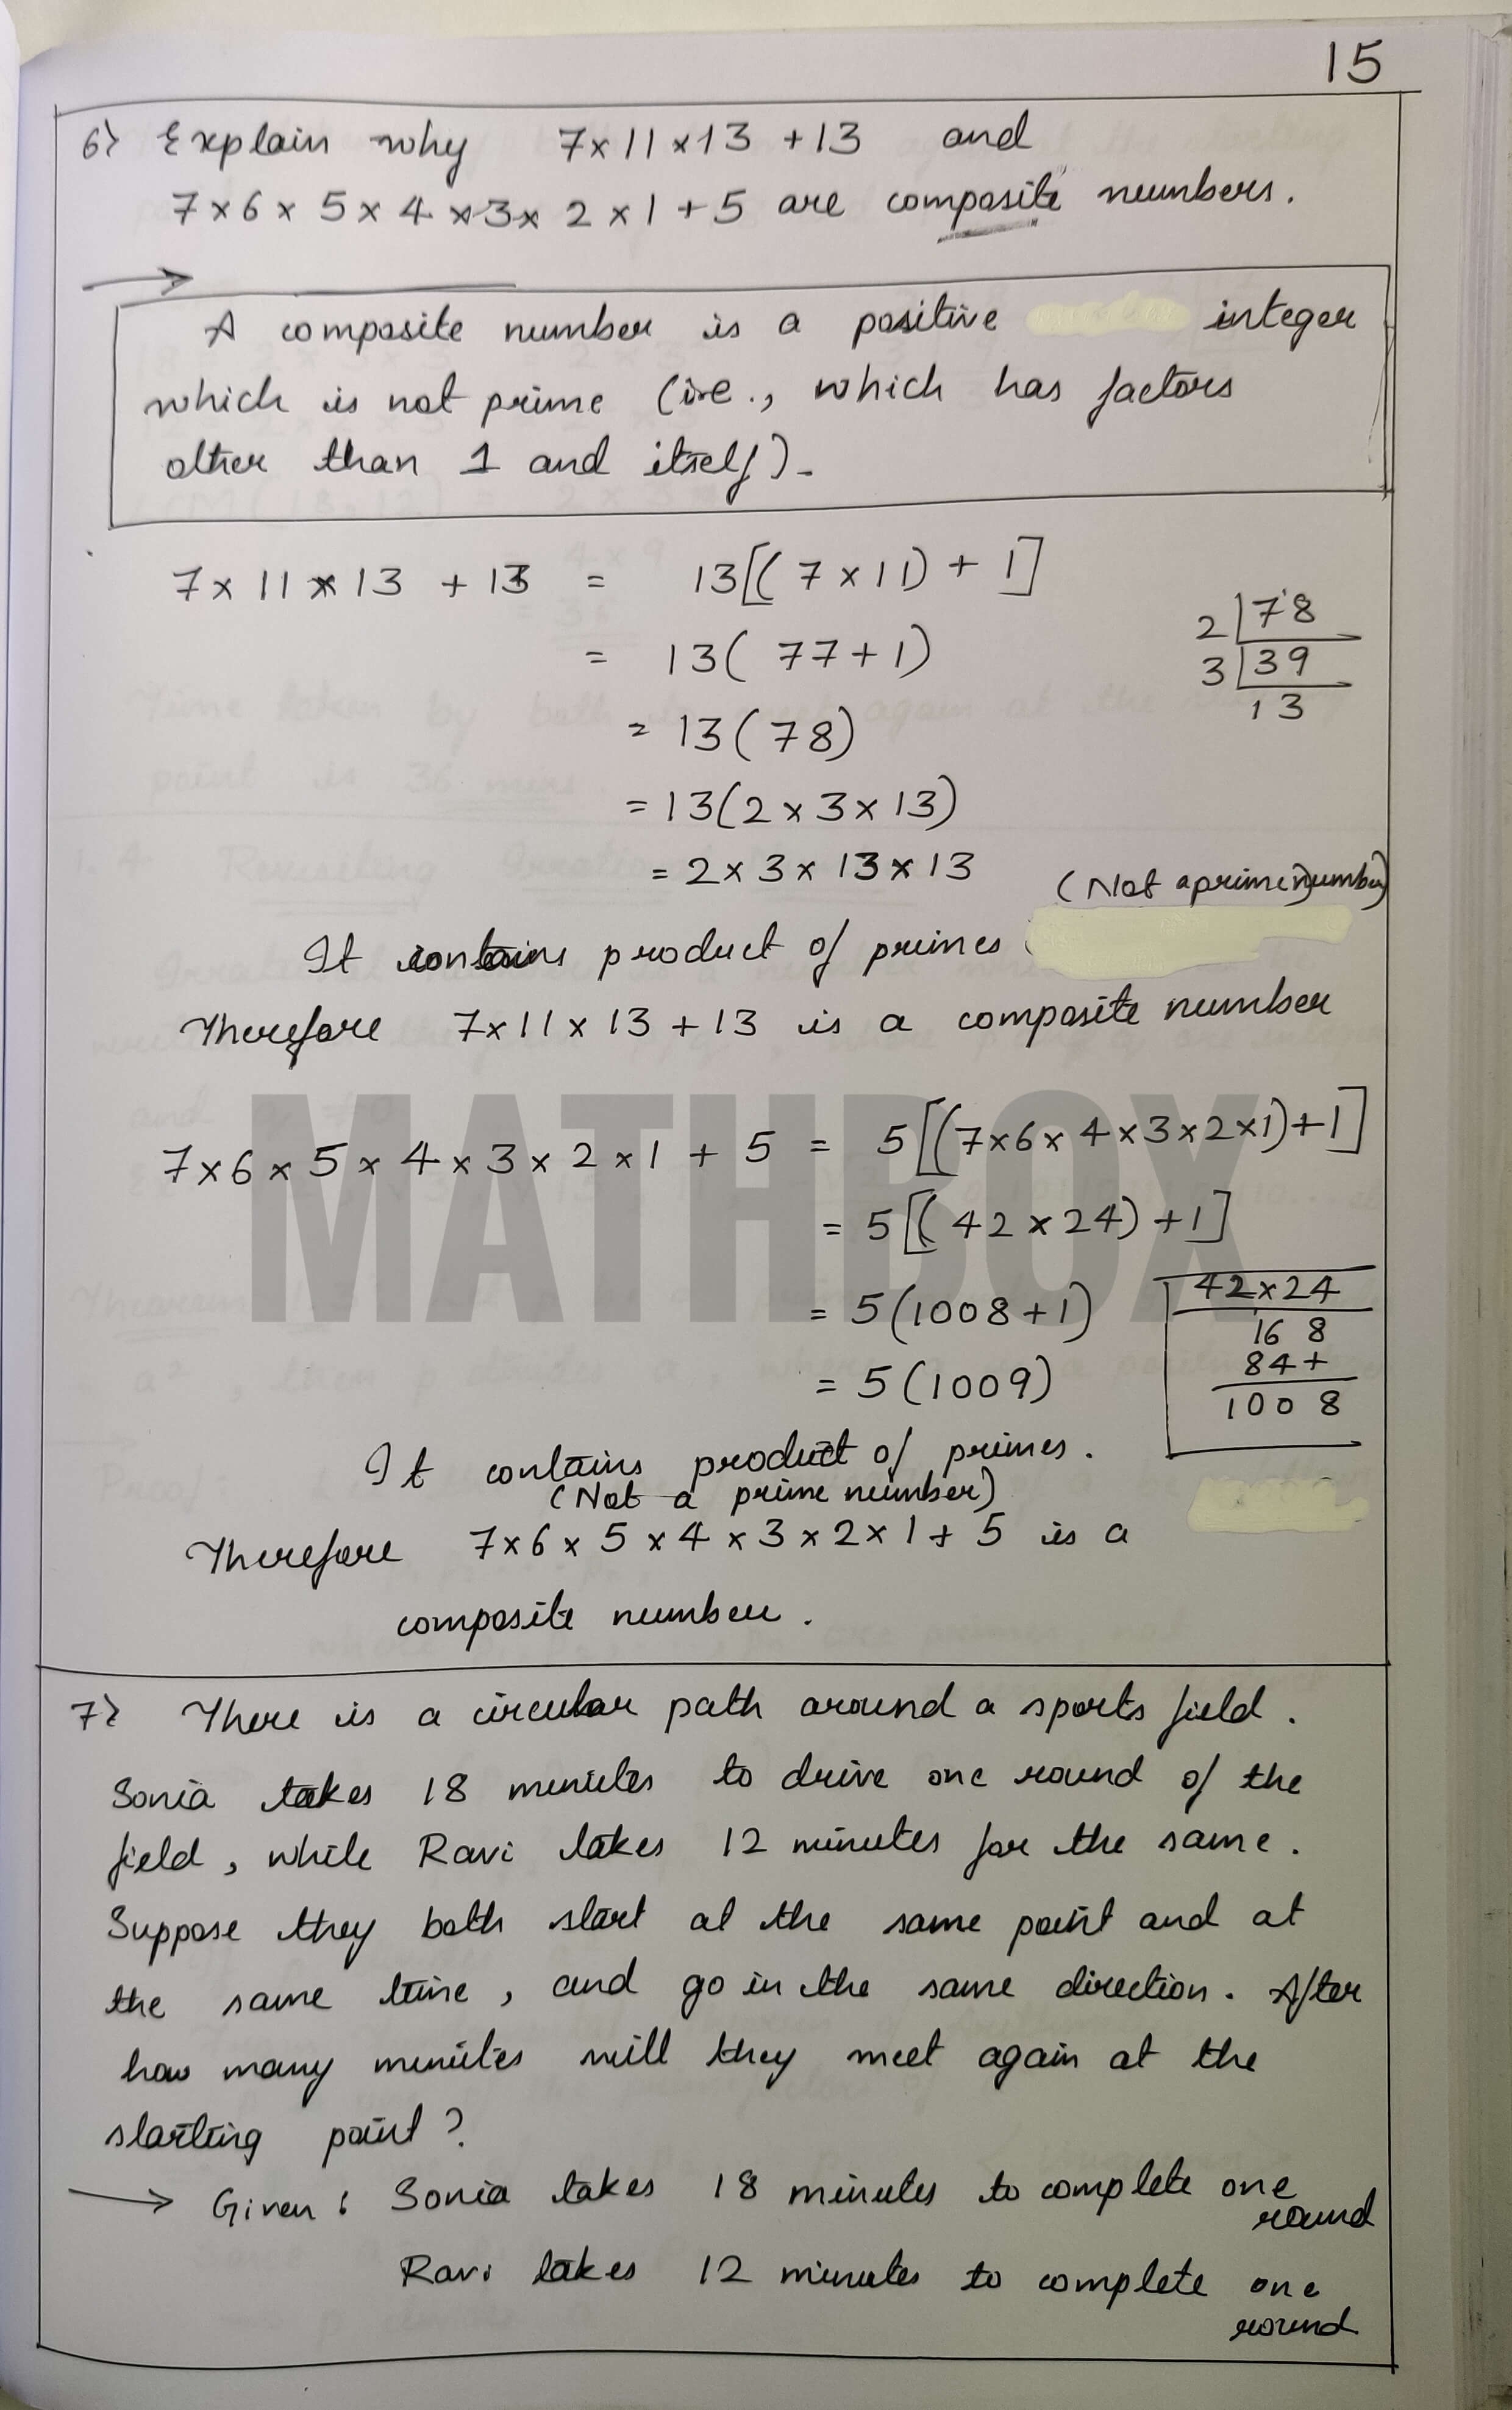 15
6) Explain why 7×11×13 +13 and
7×6×5×4×3×2×1+5 are composite numbers.
→
A composite number is a positive integer
which is not prime (i.e., which has factors
other than 1 and itself).
7×11×13 +13 = 13[(7×11)+1]
= 13(77+1)
2|78
3|39
13
= 13(78)
= 13(2×3×13)
= 2×3×13×13
(Not a prime number)
It contains product of primes
Therefore 7×11×13+13 is a composite number
MATHBOX
7×6×5×4×3×2×1 + 5 = 5[(7×6×4×3×2×1)+1]
= 5[(42×24)+1]
= 5(1008+1)
= 5(1009)
42×24
168
84+
1008
It contains product of primes.
(Not a prime number)
Therefore 7×6×5×4×3×2×1+5 is a
composite number.
7) There is a circular path around a sports field.
Sonia takes 18 minutes to drive one round of the
field, while Ravi takes 12 minutes for the same.
Suppose they both start at the same point and at
the same time, and go in the same direction. After
how many minutes will they meet again at the
starting point?
→ Given: Sonia takes 18 minutes to complete one
round
Ravi takes 12 minutes to complete one
round